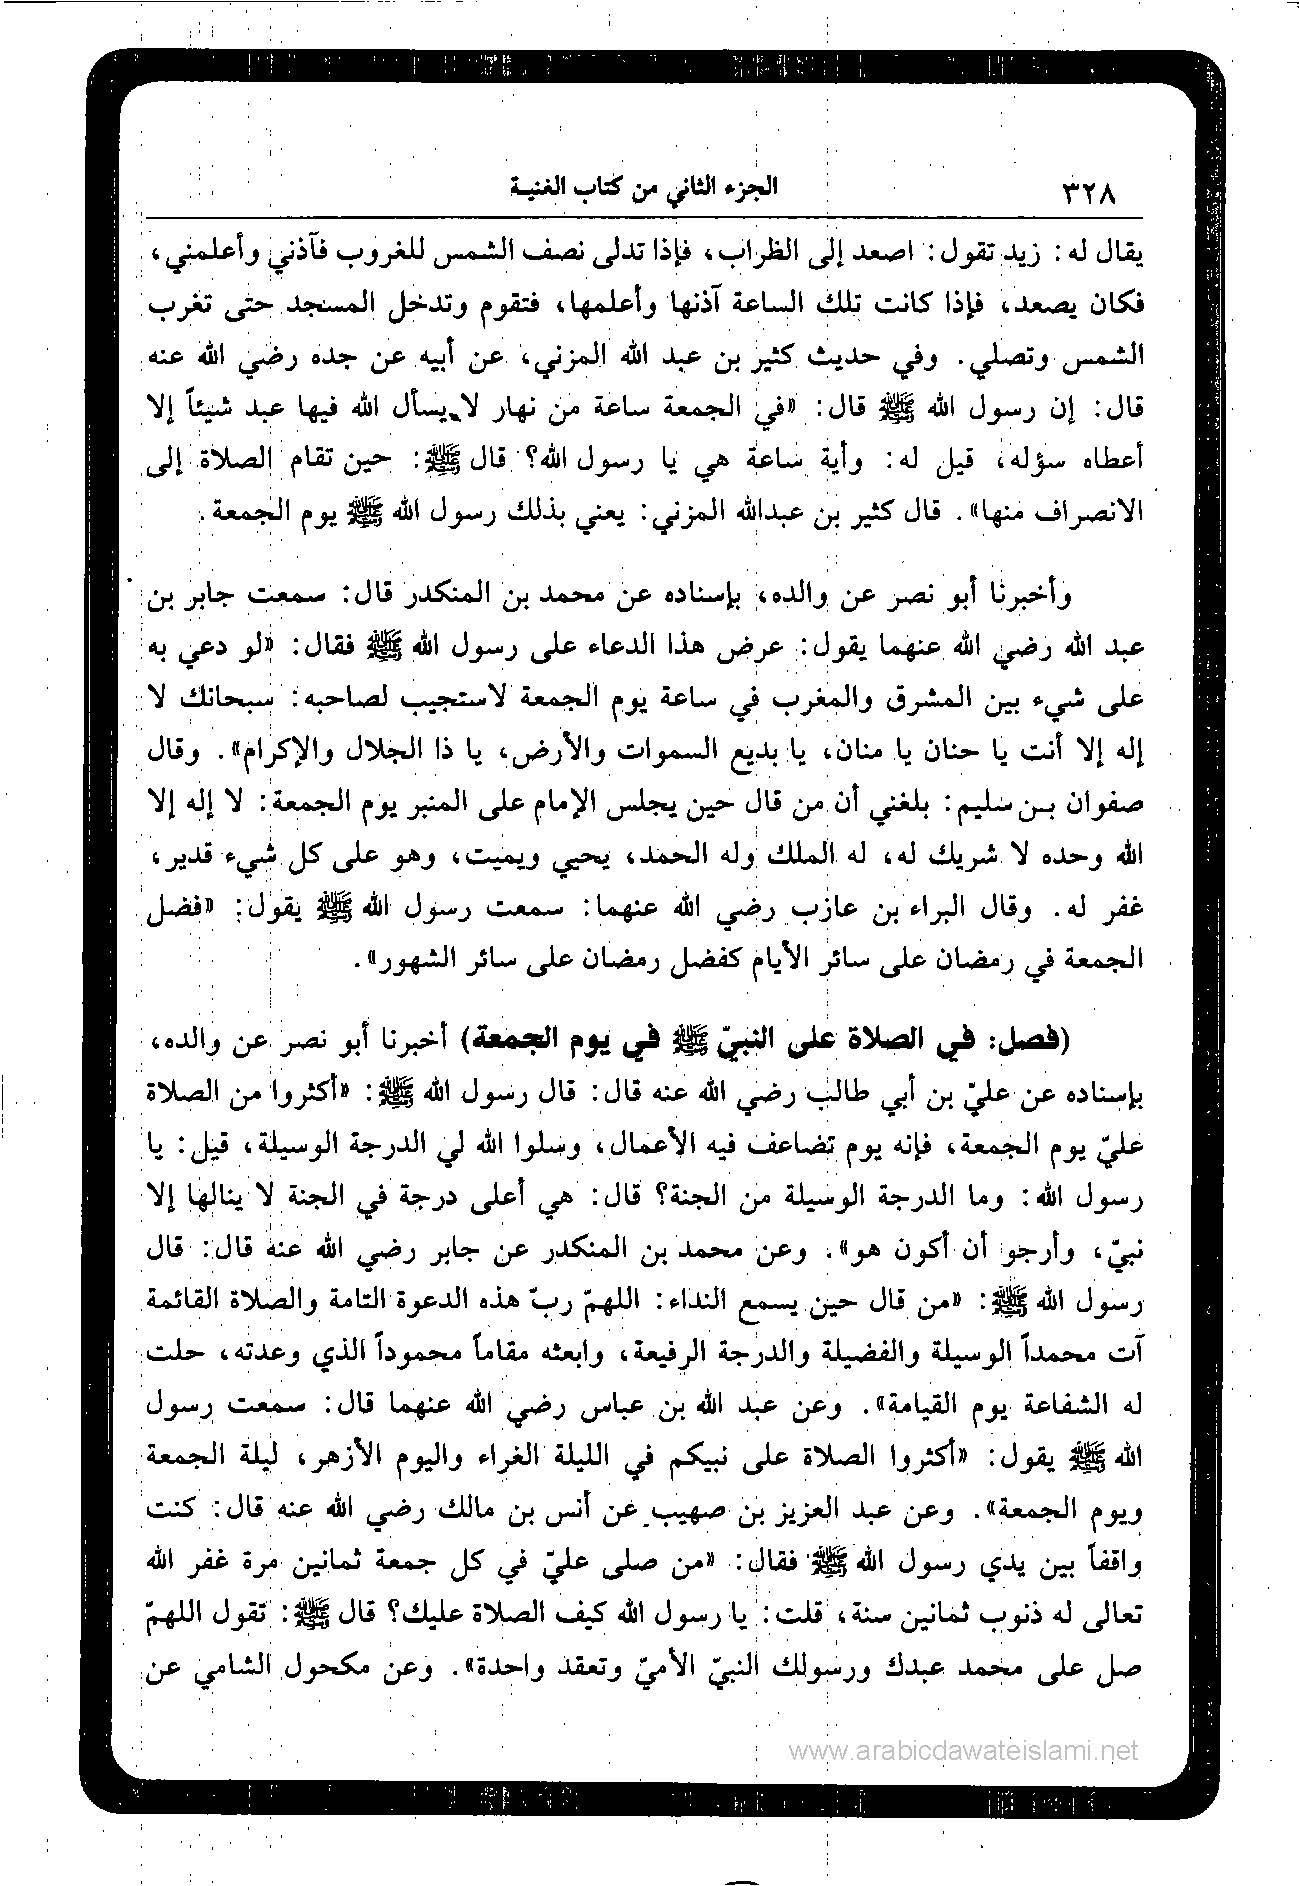 ٣٢٨
الجزء الثاني من كتاب الغنية
يقال له: زيد تقول: اصعد إلى الظراب، فإذا تدلى نصف الشمس للغروب فآذني وأعلمني،
فكان يصعد، فإذا كانت تلك الساعة آذنها وأعلمها، فتقوم وتدخل المسجد حتى تغرب
الشمس وتصلي. وفي حديث كثير بن عبد الله المزني، عن أبيه عن جده رضي الله عنه
قال: إن رسول الله ﷺ قال: «في الجمعة ساعة من نهار لا يسأل الله فيها عبد شيئاً إلا
أعطاه سؤله، قيل له: وأية ساعة هي يا رسول الله؟ قال ﷺ: حين تقام الصلاة إلى
الانصراف منها». قال كثير بن عبدالله المزني: يعني بذلك رسول الله ﷺ يوم الجمعة.
وأخبرنا أبو نصر عن والده، بإسناده عن محمد بن المنكدر قال: سمعت جابر بن
عبد الله رضي الله عنهما يقول: عرض هذا الدعاء على رسول الله ﷺ فقال: «لو دعي به
على شيء بين المشرق والمغرب في ساعة يوم الجمعة لاستجيب لصاحبه: سبحانك لا
إله إلا أنت يا حنان يا منان، يا بديع السموات والأرض، يا ذا الجلال والإكرام». وقال
صفوان بن سليم: بلغني أن من قال حين يجلس الإمام على المنبر يوم الجمعة: لا إله إلا
الله وحده لا شريك له، له الملك وله الحمد، يحيي ويميت، وهو على كل شيء قدير،
غفر له. وقال البراء بن عازب رضي الله عنهما: سمعت رسول الله ﷺ يقول: «فضل
الجمعة في رمضان على سائر الأيام كفضل رمضان على سائر الشهور».
(فصل: في الصلاة على النبيّ ﷺ في يوم الجمعة) أخبرنا أبو نصر عن والده،
بإسناده عن عليّ بن أبي طالب رضي الله عنه قال: قال رسول الله ﷺ: «أكثروا من الصلاة
عليّ يوم الجمعة، فإنه يوم تضاعف فيه الأعمال، وسلوا الله لي الدرجة الوسيلة، قيل: يا
رسول الله: وما الدرجة الوسيلة من الجنة؟ قال: هي أعلى درجة في الجنة لا ينالها إلا
نبيّ، وأرجو أن أكون هو». وعن محمد بن المنكدر عن جابر رضي الله عنه قال: قال
رسول الله ﷺ: «من قال حين يسمع النداء: اللهمّ ربّ هذه الدعوة التامة والصلاة القائمة
آت محمداً الوسيلة والفضيلة والدرجة الرفيعة، وابعثه مقاماً محموداً الذي وعدته، حلت
له الشفاعة يوم القيامة». وعن عبد الله بن عباس رضي الله عنهما قال: سمعت رسول
الله ﷺ يقول: «أكثروا الصلاة على نبيكم في الليلة الغراء واليوم الأزهر، ليلة الجمعة
ويوم الجمعة». وعن عبد العزيز بن صهيب عن أنس بن مالك رضي الله عنه قال: كنت
واقفاً بين يدي رسول الله ﷺ فقال: «من صلى عليّ في كل جمعة ثمانين مرة غفر الله
تعالى له ذنوب ثمانين سنة، قلت: يا رسول الله كيف الصلاة عليك؟ قال ﷺ: تقول اللهمّ
صل على محمد عبدك ورسولك النبيّ الأميّ وتعقد واحدة». وعن مكحول الشامي عن
www.arabicdawateislami.net